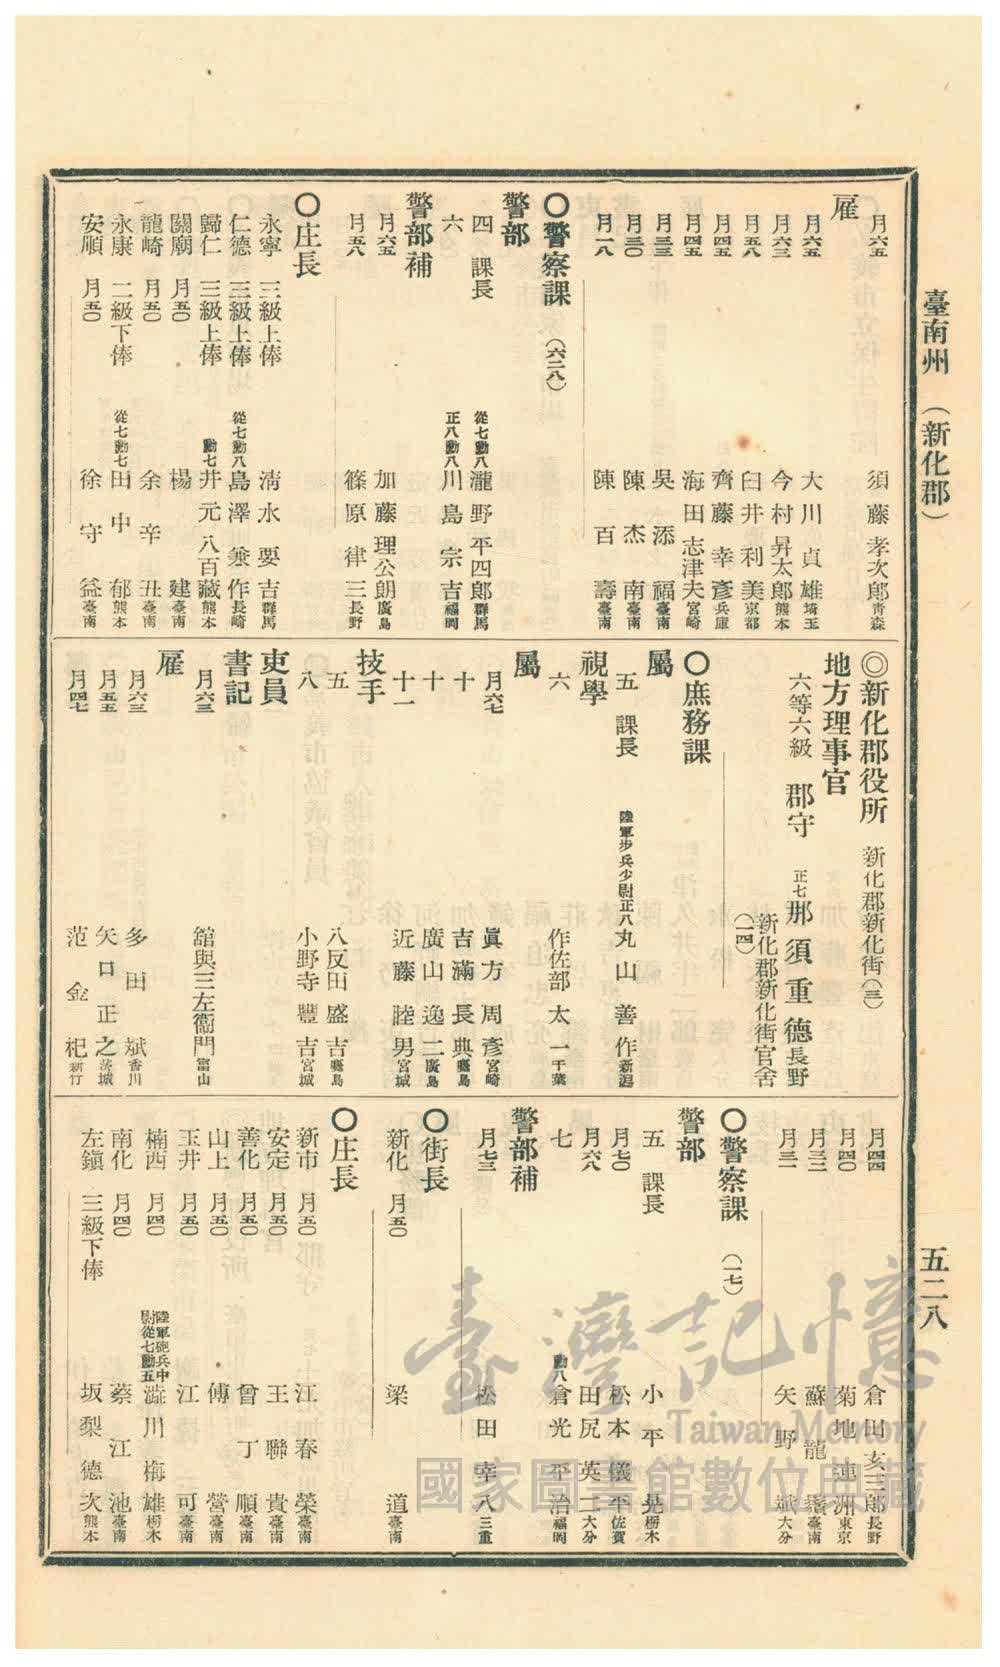 臺南州 (新化郡)
五二八
月六五 須藤孝次郎 青森
雇
月六五 大川貞雄 埼玉
月六三 今村昇太郎 熊本
月五八 臼井利美 京都
月四五 齊藤幸彥 兵庫
月四五 海田志津夫 宮崎
月三三 吳添福 臺南
月三〇 陳杰南 臺南
月一八 陳百壽 臺南
〇警察課 (六二八)
警部
四 課長 從七勳八 瀧野平四郎 群馬
六 正八勳八 川島宗吉 福岡
警部補
月六五 加藤理公朗 廣島
月五八 篠原律三 長野
〇庄長
永寧 三級上俸 淸水要吉 群馬
仁德 三級上俸 從七勳八 島澤兼作 長崎
歸仁 三級上俸 勳七 井元八百藏 熊本
關廟 月五〇 楊建 臺南
龍崎 月五〇 余辛丑 臺南
永康 二級下俸 從七勳七 田中郁 熊本
安順 月五〇 徐守益 臺南
◎新化郡役所 新化郡新化街(三)
地方理事官
六等六級 郡守 正七 那須重德 長野
新化郡新化街官舍
(一四)
〇庶務課
屬
五 課長 陸軍步兵少尉正八 丸山善作 新潟
視學
六 作佐部太一 千葉
屬
月六七 眞方周彥 宮崎
十 吉滿長典 鹿島
十 廣山逸二 廣島
十一 近藤睦男 宮城
技手
五 八反田盛吉 鹿島
八 小野寺豐吉 宮城
吏員
書記
月六三 舘與三左衞門 富山
雇
月六三 多田斌 香川
月五五 矢口正之 茨城
月四七 范金杞 新竹
月四四 倉田亥三郎 長野
月四〇 菊地連洲 東京
月三二 蘇龍 臺南
月三一 矢野斌 大分
〇警察課 (一七)
警部
五 課長 小平晃 栃木
月七〇 松本儀平 佐賀
月六八 田尻英二 大分
七 勳八 倉光平治 福岡
警部補
月七三 松田幸八 三重
〇街長
新化 月五〇 梁道 臺南
〇庄長
新市 月五〇 江春榮 臺南
安定 月五〇 王聯貴 臺南
善化 月五〇 曾丁順 臺南
山上 月五〇 傅營 臺南
玉井 月五〇 江可 臺南
楠西 月四〇 陸軍砲兵中尉從七勳五 澁川梅雄 栃木
南化 月四〇 蔡江池 臺南
左鎭 三級下俸 坂梨德次 熊本
臺灣記憶
Taiwan Memory
國家圖書館數位典藏